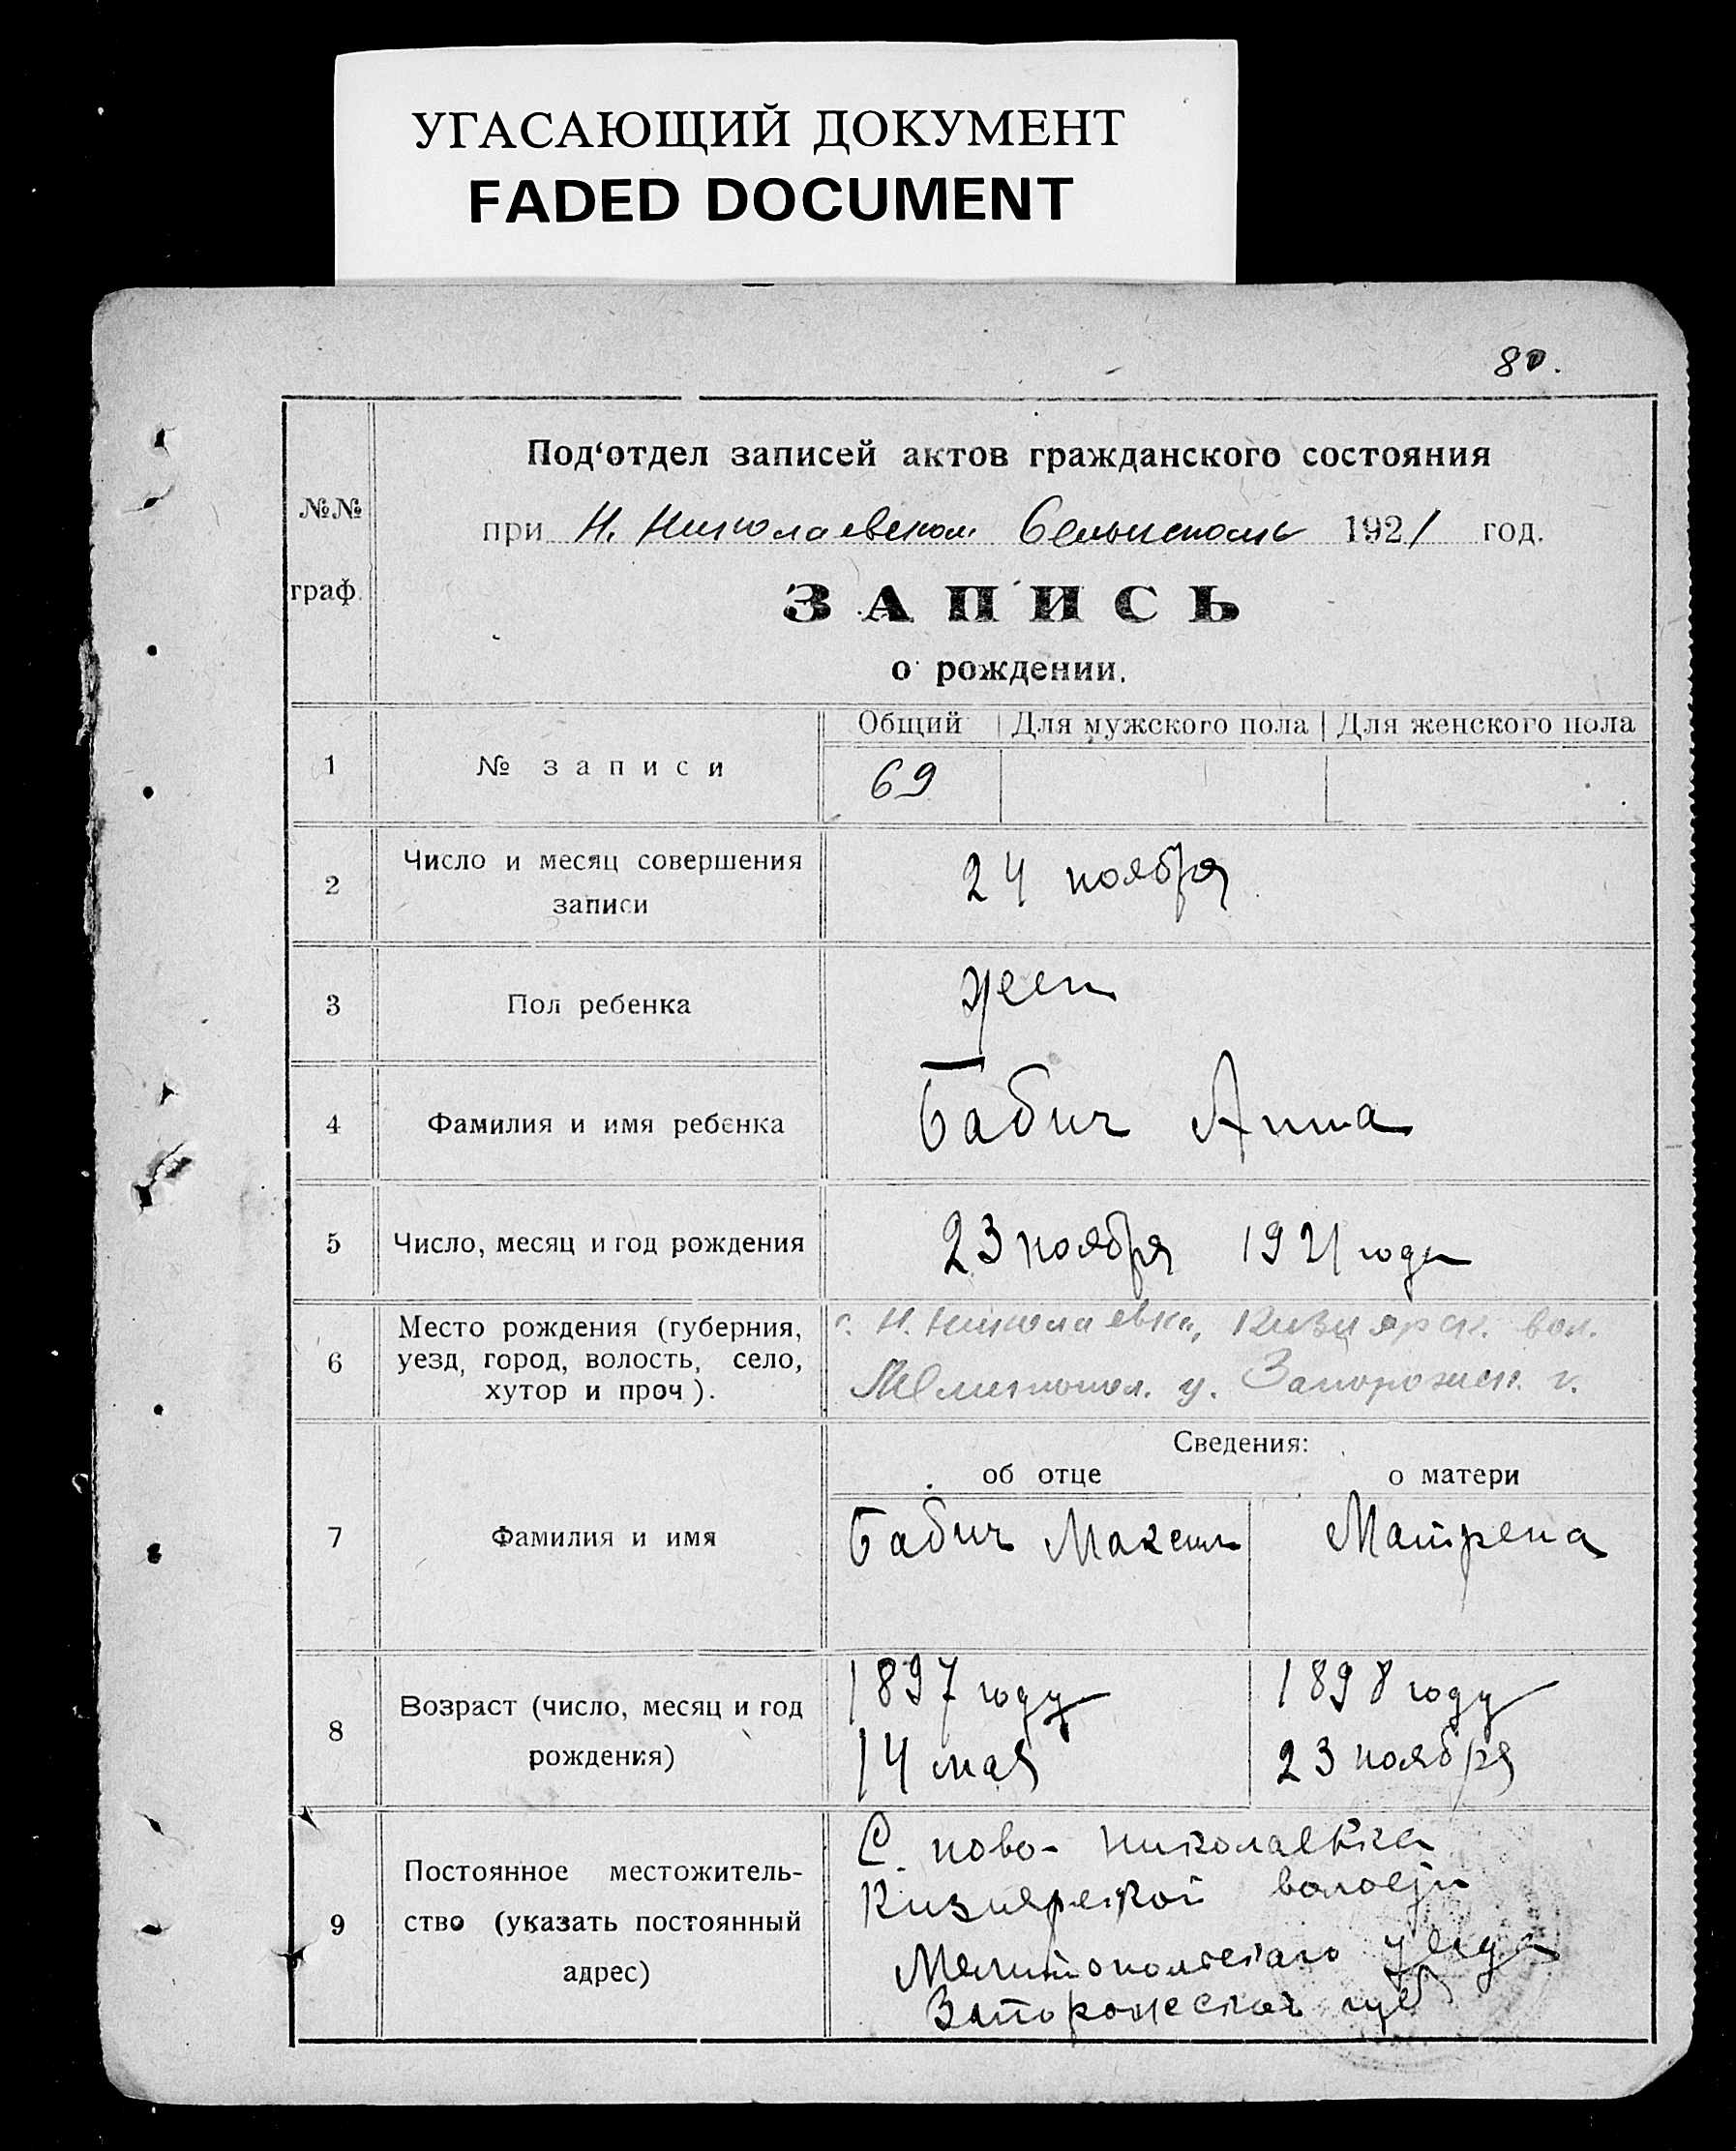 УГАСАЮЩИЙ ДОКУМЕНТ
FADED DOCUMENT
80.
№№ граф.
Под‘отдел записей актов гражданского состояния
при Н. Николаевском 1921 год.
ЗАПИСЬ
о рождении.
Общий Для мужского пола Для женского пола
1 № записи 69
2 Число и месяц совершения
записи
24 ноября
3 Пол ребенка жен
4 Фамилия и имя ребенка Бабич Анна
5 Число, месяц и год рождения 23 ноября 1921 года
6 Место рождения (губерния,
уезд, город, волость, село,
хутор и проч).
с. Н. Николаевка, Кизиярск. вол.
Мелитопол. у. Запорожск. г.
Сведения:
об отце о матери
7 Фамилия и имя Бабич Максим Матрена
8 Возраст (число, месяц и год
рождения)
1897 году 1898 году
14 мая 23 ноября
9 Постоянное местожитель-
ство (указать постоянный
адрес)
С. ново-николаевка
Кизиярской волости
Мелитопольского уезда
Запорожской губ